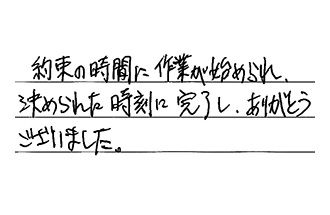 約束の時間に作業が始められ、
決められた時刻に完了し、ありがとう
ございました。